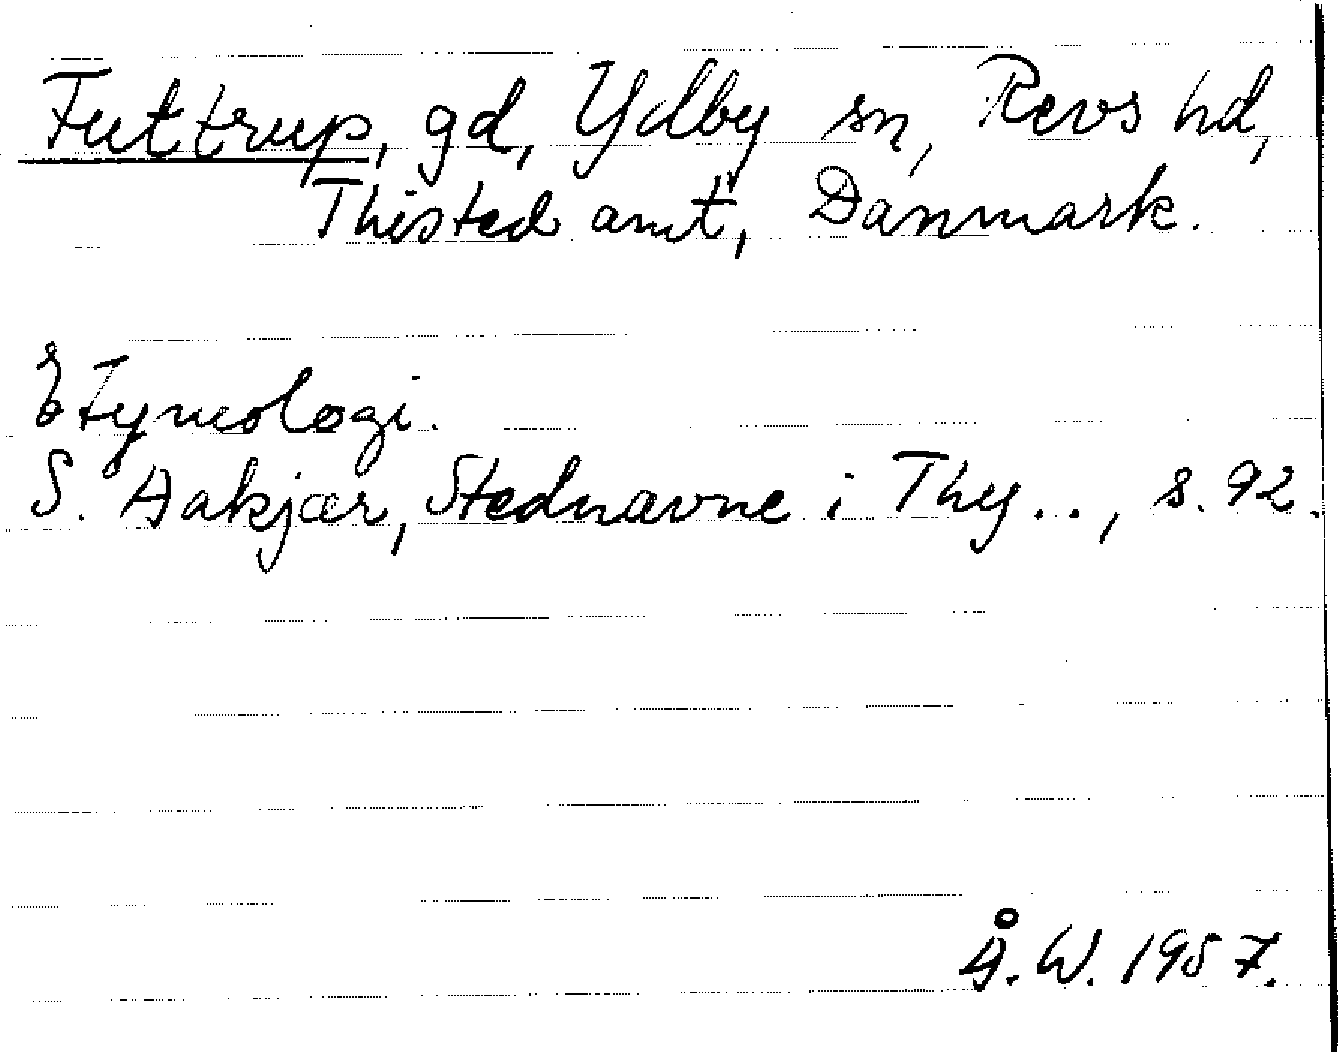 Futtrup, gd, Ydby sn, Revs hd,
Thisted amt, Danmark.
Etymologi.
S. Aakjær, Stednavne i Thy.., s. 92.
Å. W. 1957.